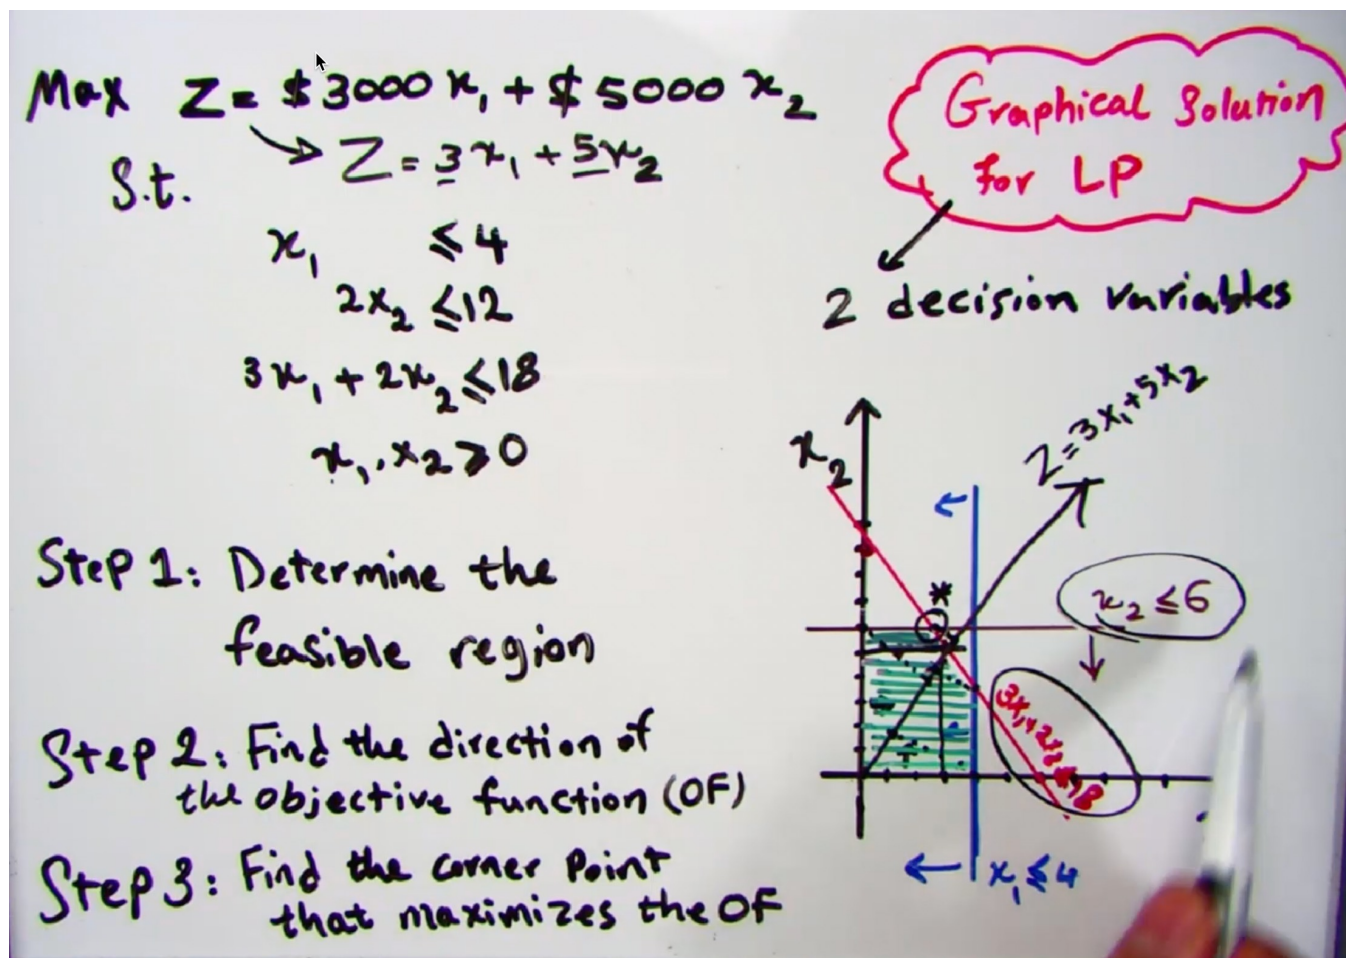 Max Z = $3000 x₁ + $5000 x₂
Z = 3x₁ + 5x₂
S.t.
x₁ ≤ 4
2x₂ ≤ 12
3x₁ + 2x₂ ≤ 18
x₁, x₂ ≥ 0
Step 1: Determine the
feasible region
Step 2: Find the direction of
the objective function (OF)
Step 3: Find the corner Point
that maximizes the OF
Graphical Solution
for LP
2 decision variables
x₂
Z = 3x₁ + 5x₂
*
x₂ ≤ 6
x₁ ≤ 4